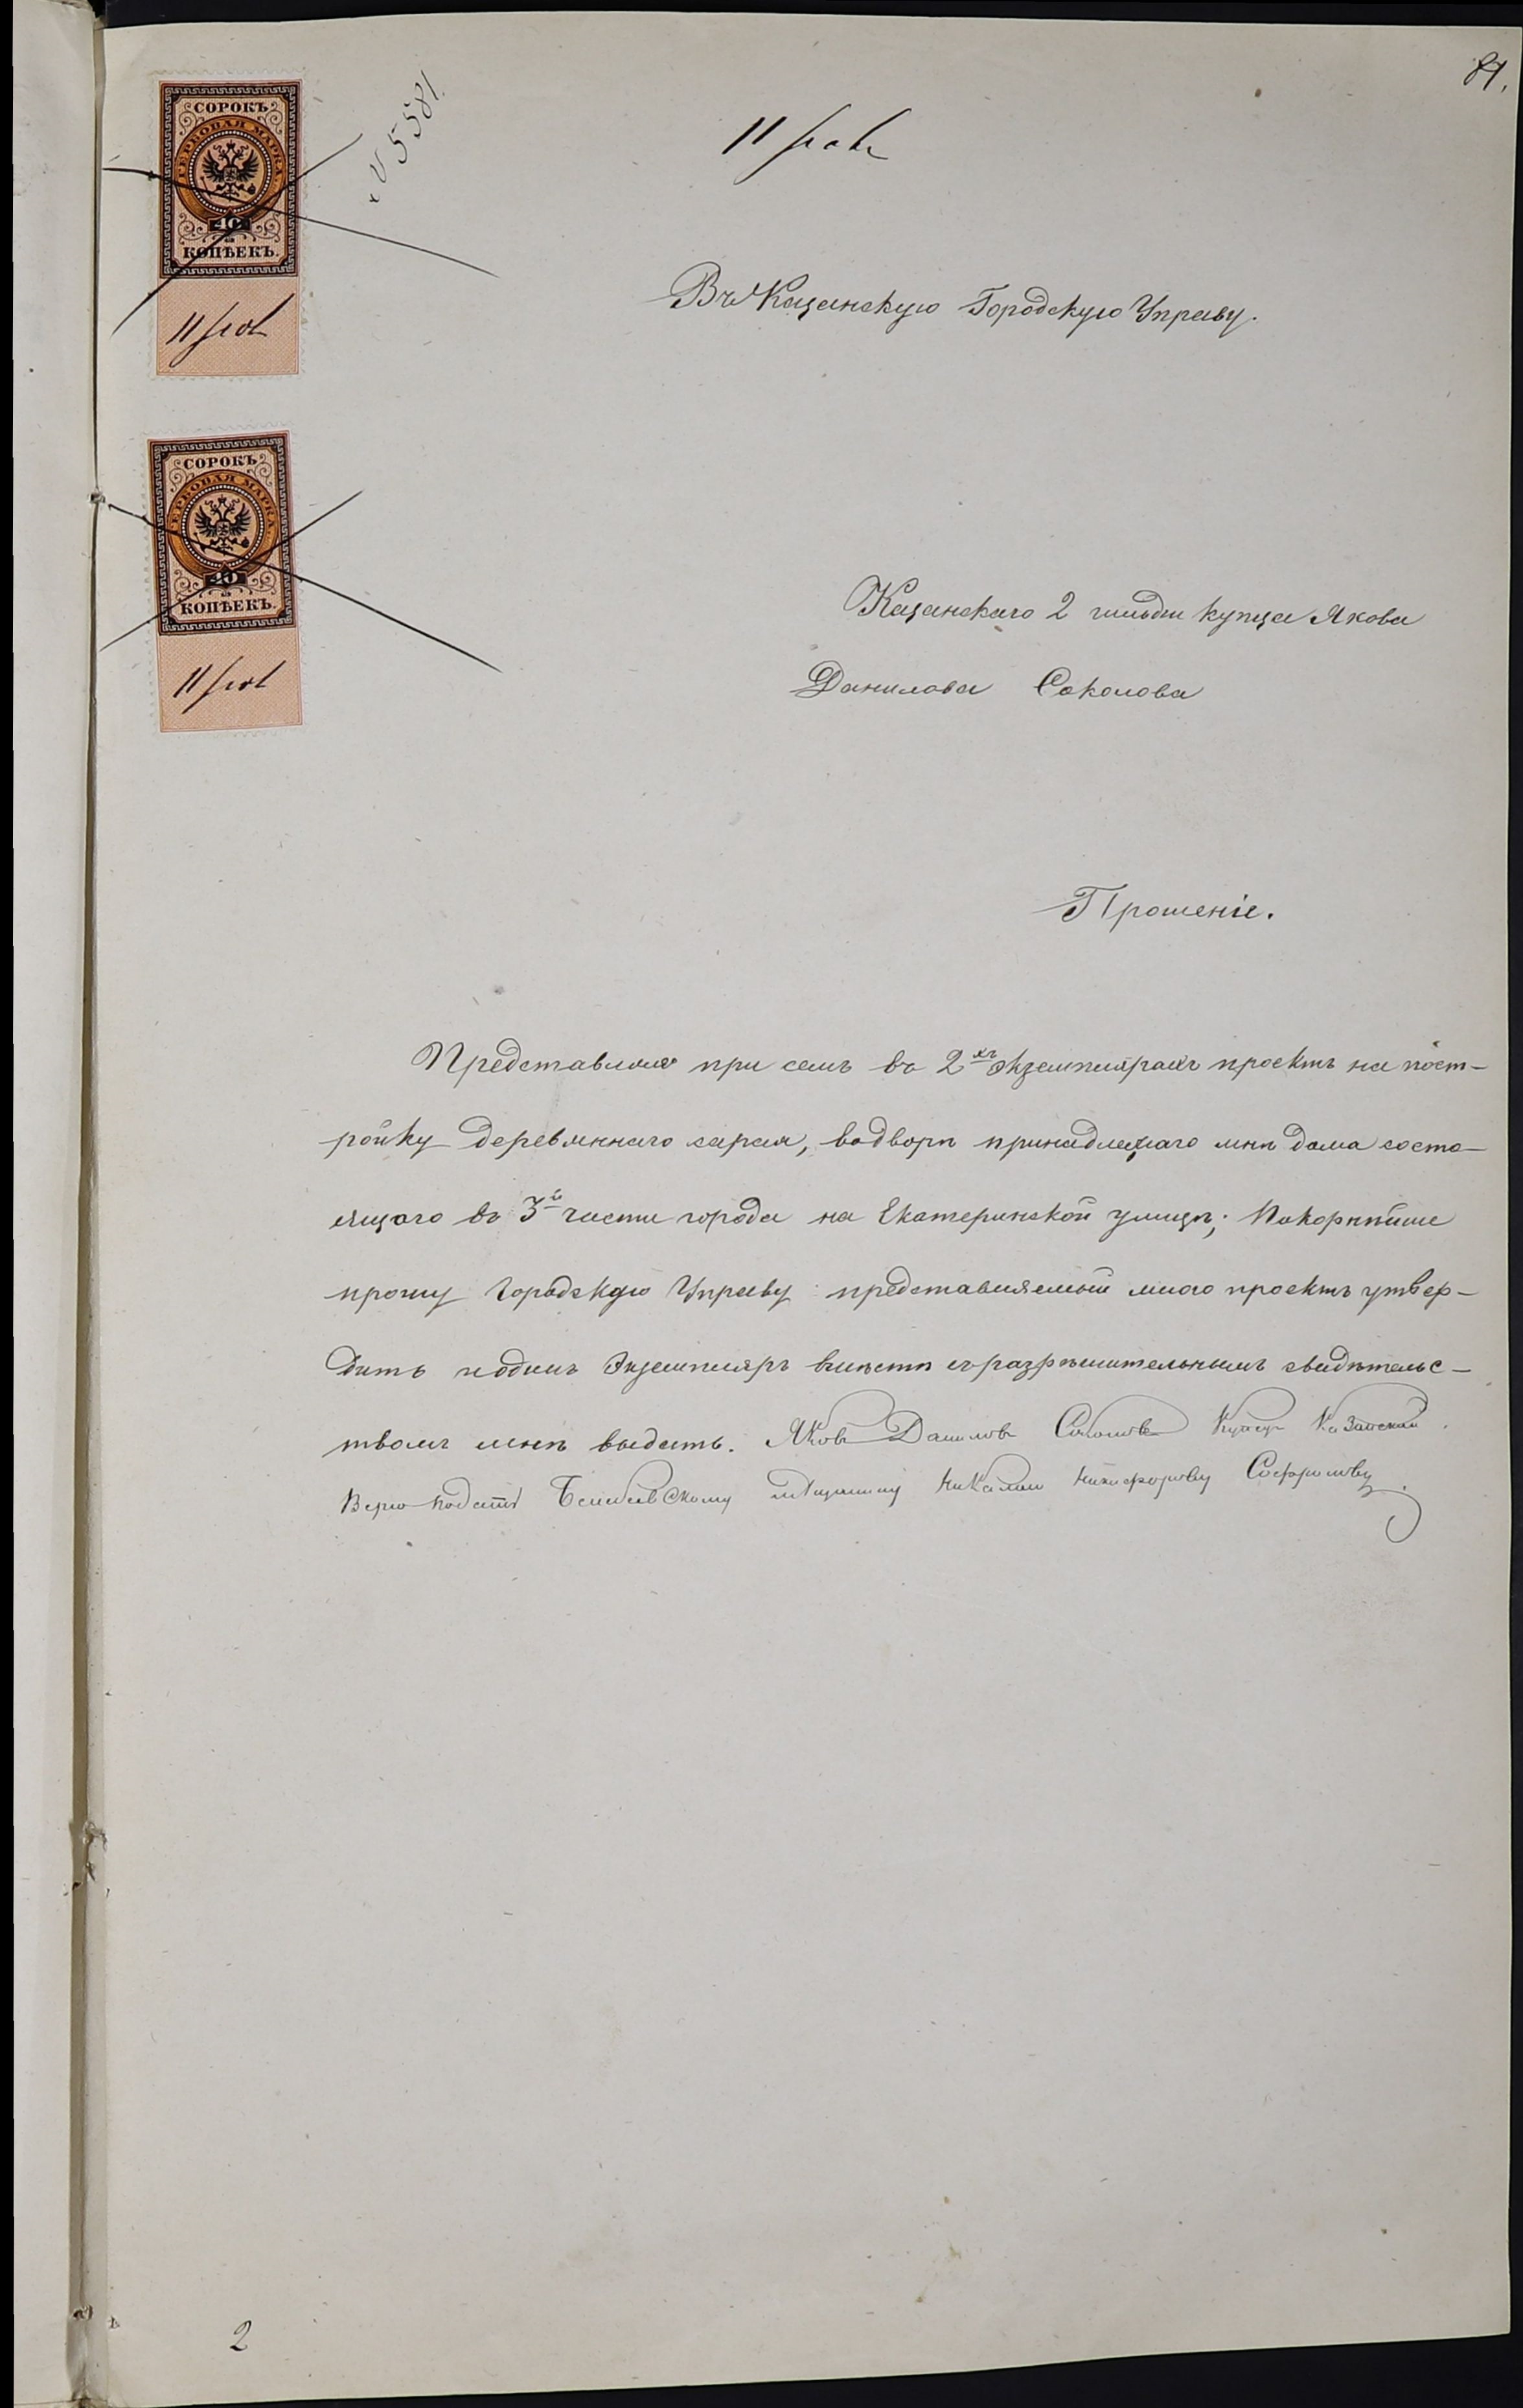 81.
№ 5581.
СОРОКЪ
ГЕРБОВАЯ МАРКА
40
КОПѢЕКЪ.
11 ноя
11 ноя
СОРОКЪ
ГЕРБОВАЯ МАРКА
40
КОПѢЕКЪ.
11 ноя
Въ Казанскую Городскую Управу.
Казанскаго 2 гильдіи купца Якова
Данилова Соколова
Прошеніе.
Представляя при семъ въ 2хъ экземплярахъ проектъ на пост-
ройку деревяннаго сарая, водворѣ принадлежаго мнѣ дома состо-
ящаго въ 3й части города на Екатеринской улицѣ; Покорнѣйше
прошу Городскую Управу представляемый мною проектъ утвер-
дить иодинъ Экземпляръ вмѣстѣ съразрѣшительнымъ свидѣтельс-
твомъ мнѣ выдать. Яковъ Даниловъ Соколовъ Купецъ Казанскай
Верю подать мѣщанину Никалаю Никифорову Софронову.
2